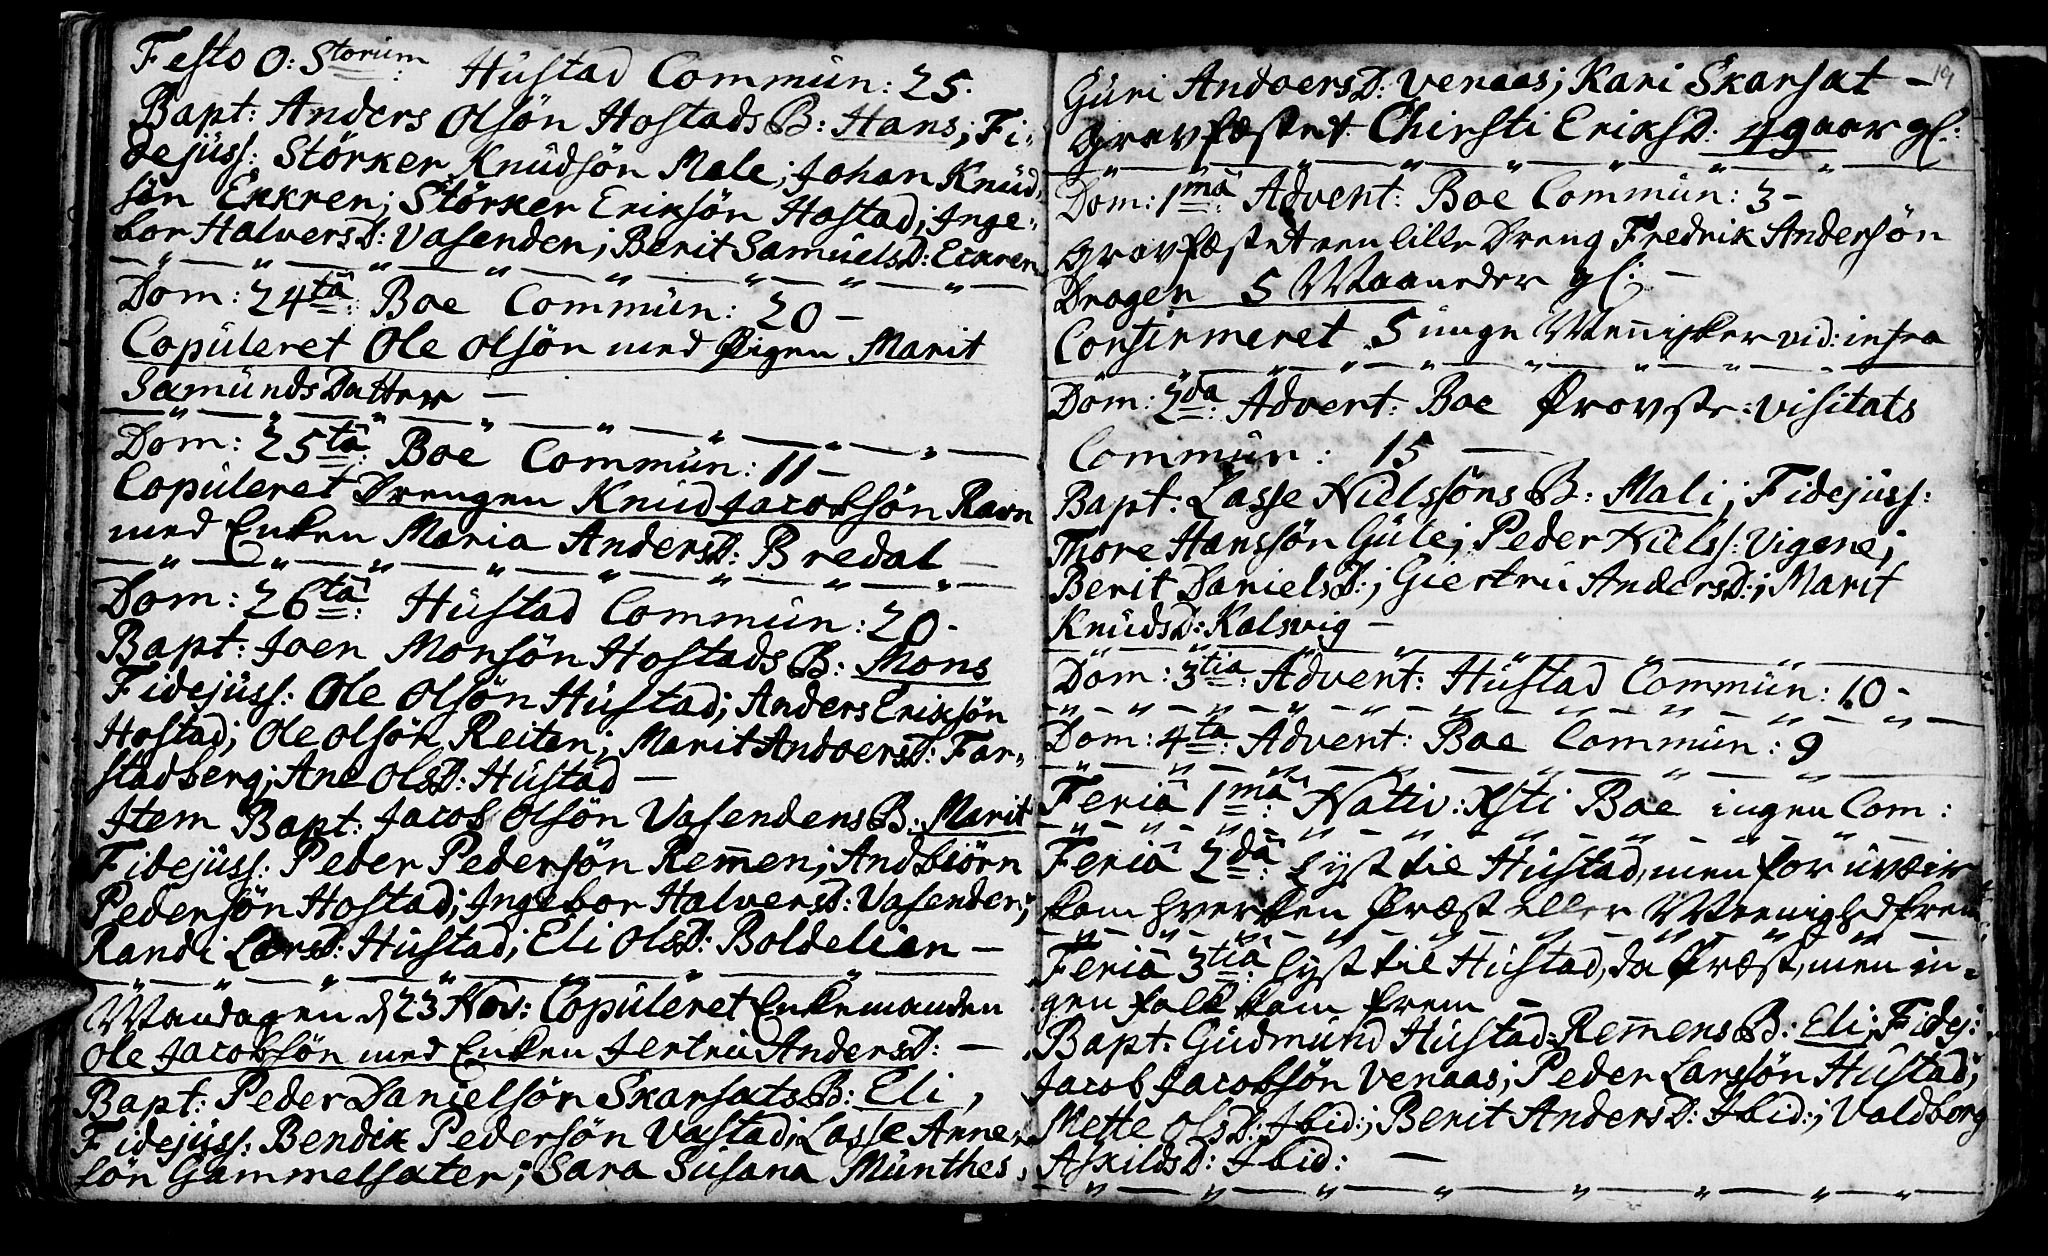 Festo O: Storum: Hustad Commun: 25.
Bapt: Anders Olsön Hostads B: Hans; Fi-
dejuss: Störker Knudsön Male; Johan Knud,
sön Ekkren; Störker Eriksön Hostad; Inge-
bor HalversD: Vasenden; Berit SamuelsD: Eckren
Dom: 24ta: Boe Commun: 20 –
Copuleret Ole Olsön med Pigen Marit
SamundsDatter –
Dom: 25ta: Boe Commun: 11 –
Copuleret Drengen Knud Jacobsön Ravn
med Enken Maria AndersD: Bredal –
Dom: 26ta: Hustad Commun: 20 -
Bapt: Joen Monsön Hostads B: Mons
Fidejuss: Ole Olsön Hustad; Anders Eriksön
Hostad; Ole Olsön Reiten; Marit AndversD: Far-
stadberg; Ane OlsD: Hustad –
Item Bapt: Jacob Olsön Vasendens B: Marit
Fidejuss: Peder Pedersön Remen; Andbiörn
Pedersön Hostad; Ingebor HalversD: Vasenden;
Randi LarsD: Hustad; Eli OlsD: Boldelien –
Mandagen d 23 Nov: Copuleret Enkemanden
Ole Jacobsön med Enken Jertru AndersD: –
Bapt: Peder Danielsön Skarsats B: Eli,
Fidejuss: Bendix Pedersön Vastad; Lasse Anner-
sön Gammelsater; Sara Susana Munthes,
19
Guri AndversD: Venaas; Kari Skarsat –
Gravfæstet Chirsti EriksD: 49 aar gl:
Dom: 1ma: Advent: Boe Commun: 3 –
Gravfæstet en lille Dreng Fredrik Andersön
Dragen 5 Maaneder gl: –
Confirmeret 5 unge Mennisker vid: infra
Dom: 2da: Advent: Boe Provste: visitats
Commun: 15 –
Bapt: Lasse Nielssöns B: Mali; Fidejuss:
Thore Hanssön Gule; Peder Nielss: Vigene;
Berit DanielsD:; Giertru AndersD:; Marit
KnudsD: Kalsvig –
Dom: 3tia: Advent: Hustad Commun: 10 -
Dom: 4ta: Advent: Boe Commun: 9
Feria 1ma: Nativ: Xsti Boe ingen Com:
Feria 2da: lyst til Hustad, men for uveir
kom hverken Præst eller Meenighed frem
Feria 3tia: lyst til Hustad, da Præst, men in-
gen folk kom frem –
Bapt: Gudmund Hustad-Remens B: Eli; Fidej:
Jacob Jacobsön Venaas; Peder Larssön Hustad;
Mette OlsD: Ibid:; Berit AndersD: Ibid:; Valdborg
AskildsD: Ibid: –